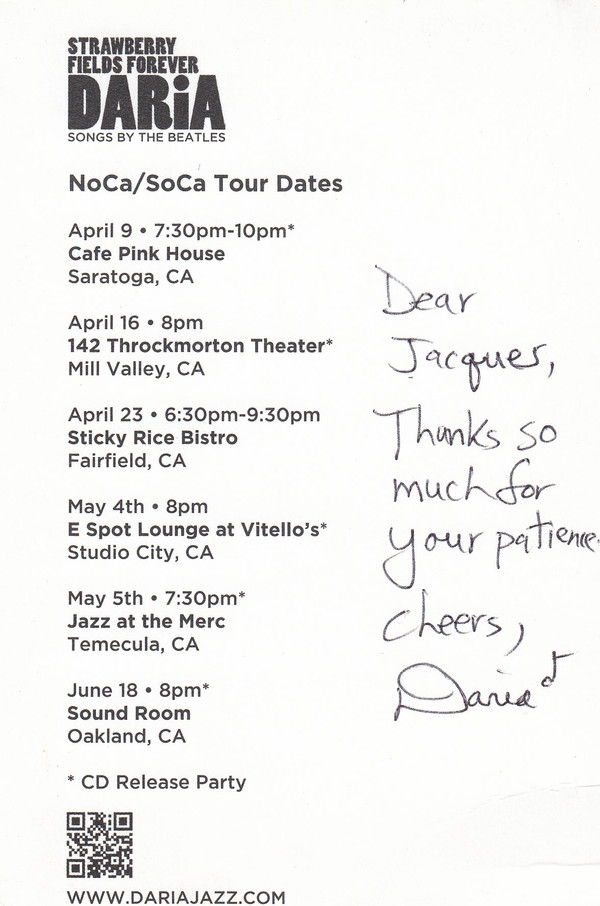 STRAWBERRY
FIELDS FOREVER
DARiA
SONGS BY THE BEATLES
NoCa/SoCa Tour Dates
April 9 • 7:30pm-10pm*
Cafe Pink House
Saratoga, CA
April 16 • 8pm
142 Throckmorton Theater*
Mill Valley, CA
April 23 • 6:30pm-9:30pm
Sticky Rice Bistro
Fairfield, CA
May 4th • 8pm
E Spot Lounge at Vitello's*
Studio City, CA
May 5th • 7:30pm*
Jazz at the Merc
Temecula, CA
June 18 • 8pm*
Sound Room
Oakland, CA
* CD Release Party
WWW.DARIAJAZZ.COM
Dear
Jacques,
Thanks so
much for
your patience.
Cheers,
Daria